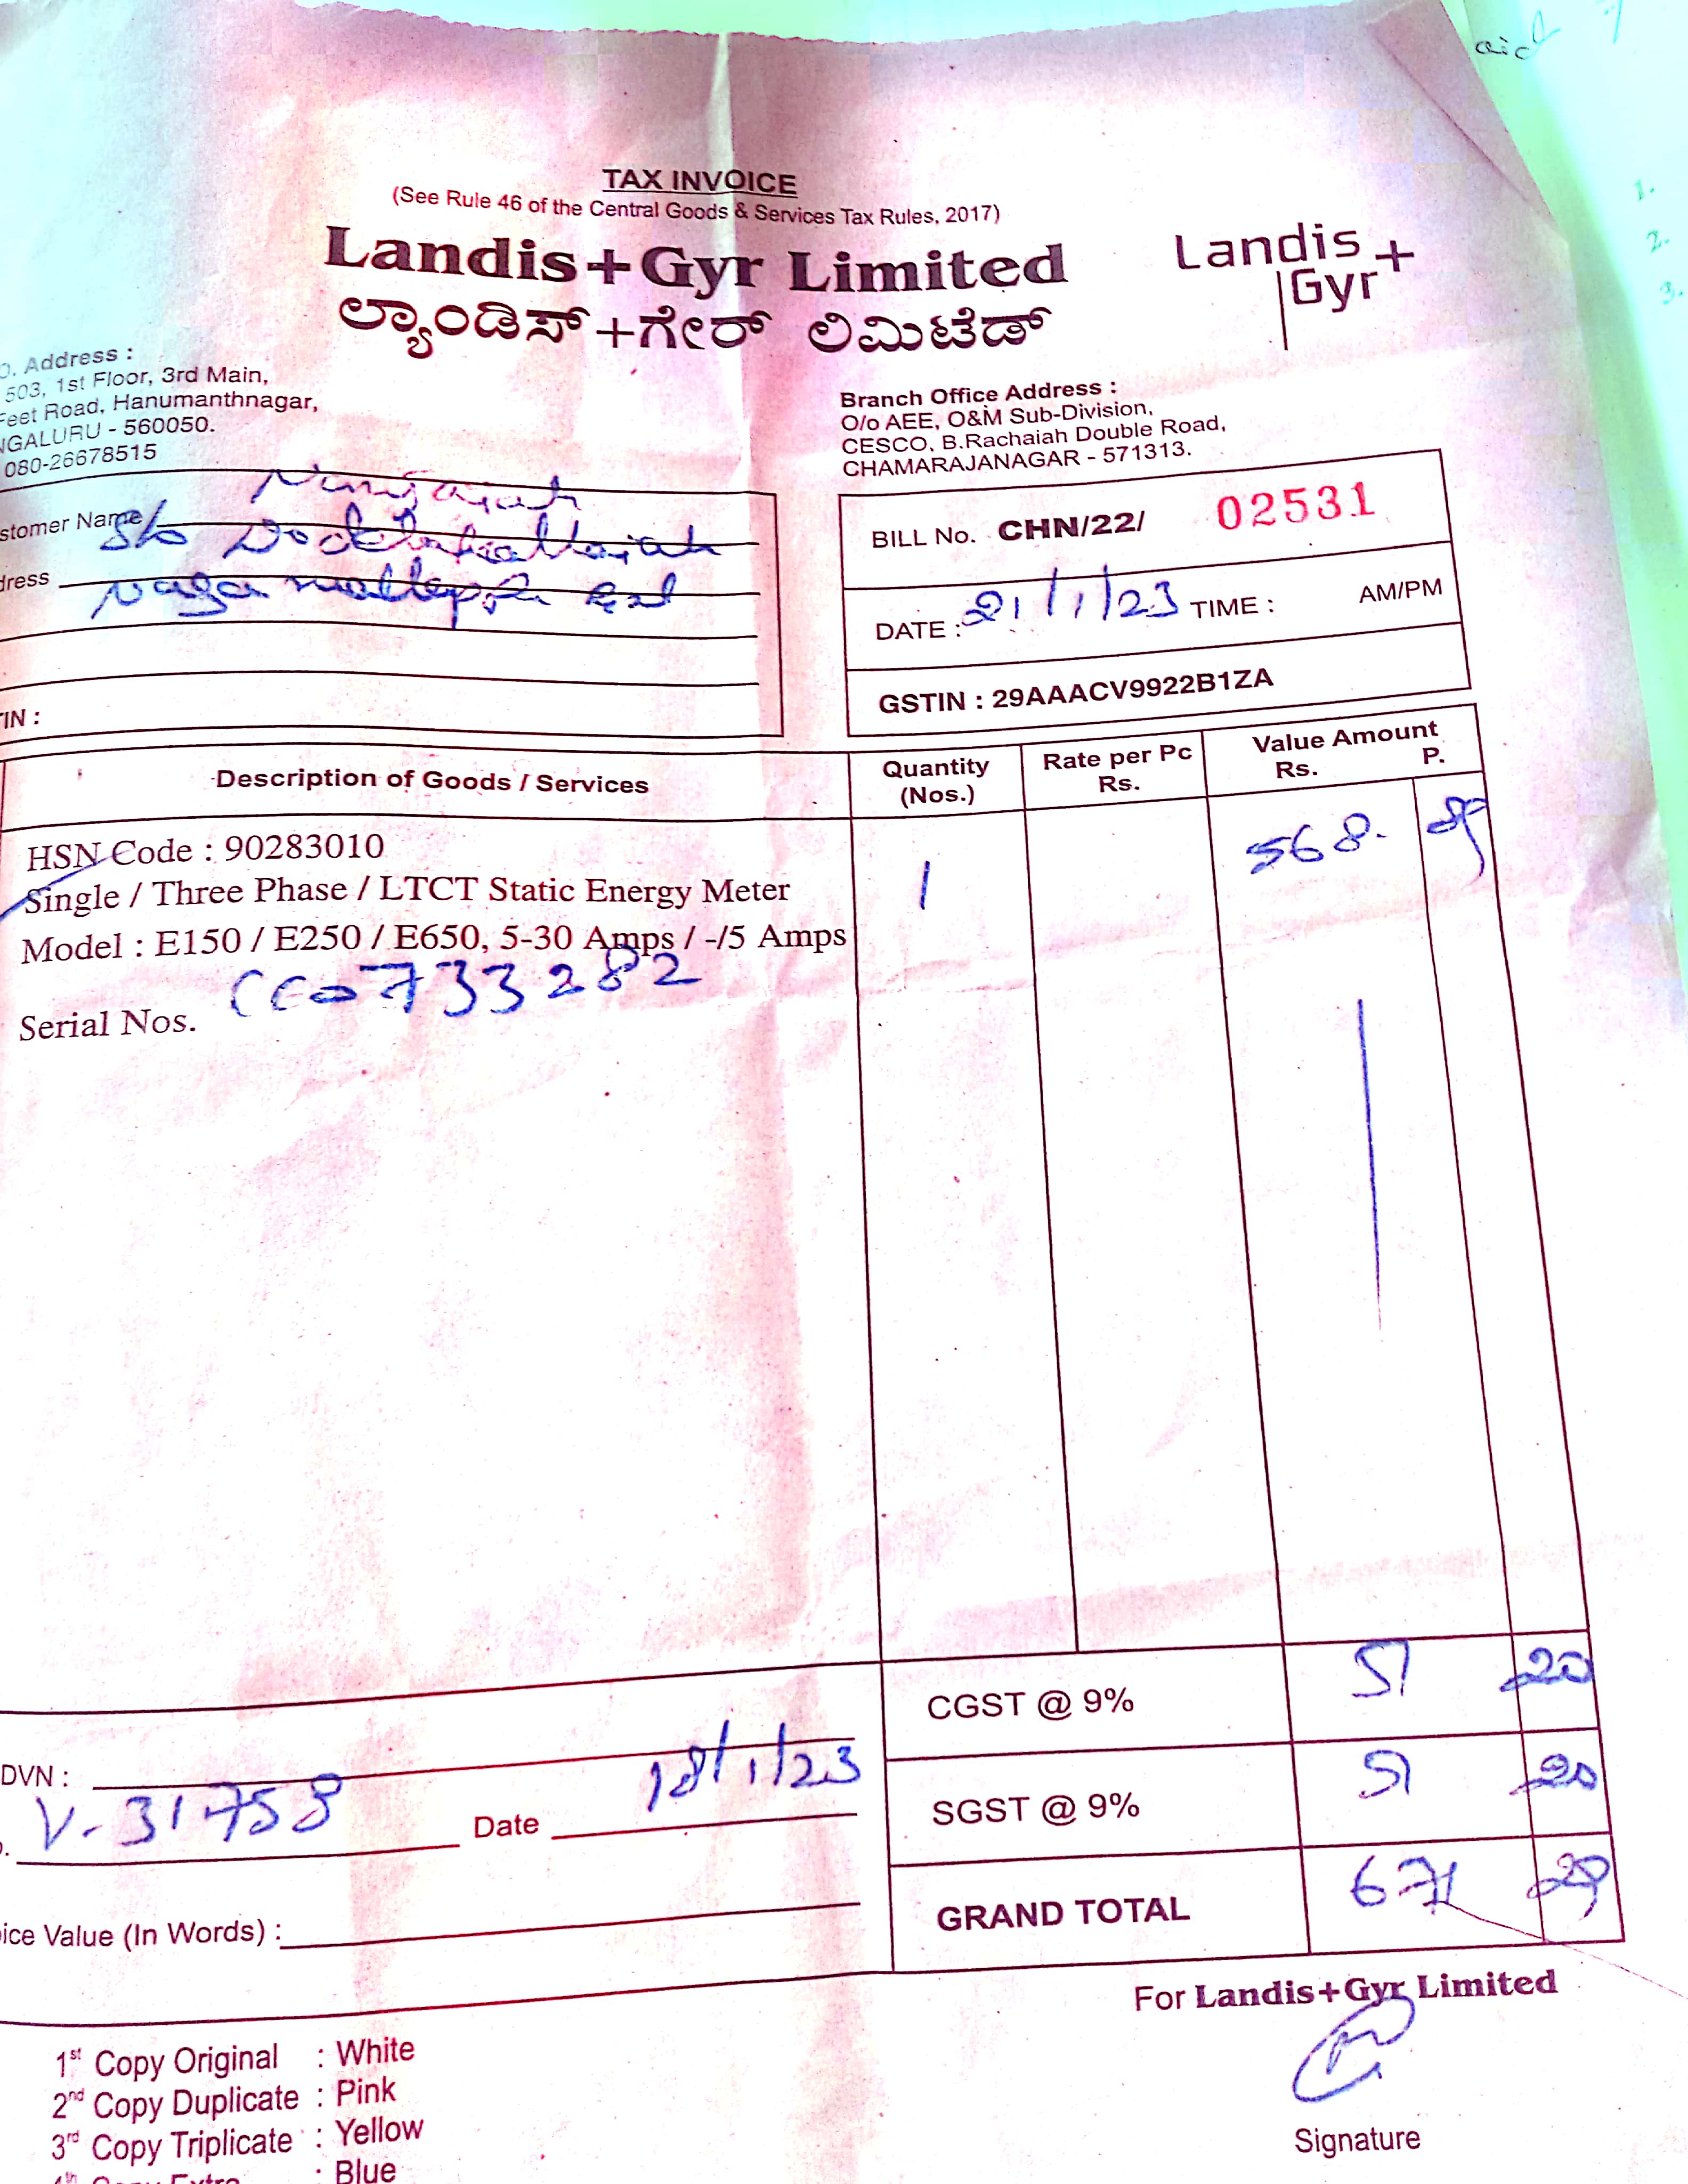 TAX INVOICE
(See Rule 46 of the Central Goods & Services Tax Rules, 2017)
Landis+Gyr Limited
ಲ್ಯಾಂಡಿಸ್+ಗೇರ್ ಲಿಮಿಟೆಡ್
Landis+
Gyr
Address :
503, 1st Floor, 3rd Main,
Feet Road, Hanumanthnagar,
NGALURU - 560050.
080-26678515
Branch Office Address :
O/o AEE, O&M Sub-Division,
CESCO, B.Rachaiah Double Road,
CHAMARAJANAGAR - 571313.
stomer Name
S/o
dress
IN :
BILL No. CHN/22/ 02531
DATE : 21/1/23 TIME : AM/PM
GSTIN : 29AAACV9922B1ZA
Description of Goods / Services
Quantity (Nos.)
Rate per Pc Rs.
Value Amount Rs. P.
HSN Code : 90283010
Single / Three Phase / LTCT Static Energy Meter
Model : E150 / E250 / E650, 5-30 Amps / -/5 Amps
1
568. 89
Serial Nos. CC0733282
CGST @ 9% 51 20
SGST @ 9% 51 20
GRAND TOTAL 671 29
DVN :
V-31758 Date 18/1/23
ice Value (In Words) :
For Landis+Gyr Limited
Signature
1st Copy Original : White
2nd Copy Duplicate : Pink
3rd Copy Triplicate : Yellow
4th Copy Extra : Blue